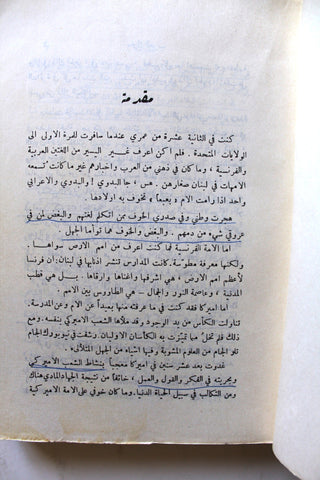 مقدمة
كنت في الثانية عشرة من عمري عندما سافرت للمرة الاولى الى
الولايات المتحدة . فلم اكن اعرف غير اليسير من اللغتين العربية
والفرنسية ، وما كان في ذهني من العرب واخبارهم غير ما كانت تسمعه
الامهات في لبنان صغارهن . هس ، جا البدوي ! والبدوي والاعرابي
واحد اذا رامت الام « بعبعاً » تخوف به اولادها .
هجرت وطني وفي صدري الخوف ممن اتكلم لغتهم والبغض لمن في
عروقي شيء من دمهم . والبغض والخوف هما توأما الجهل .
اما الامة الفرنسية فما كنت اعرف من امم الارض سواها .
ولكنها معرفة مطوّسة . كانت المدارس تنشر اذنابها في لبنان : ان فرنسا
لأعظم امم الارض ، هي اشرفها واغناها وارقاها . بل هي قطب
المدنية ، وعاصمة النور والجمال – هي الطاووس بين الامم .
أما اميركا فقد كنت في ما عرفته منها بعيداً عن الام وعن المدرسة .
تناولت الكأس من يد الوجود وقد ملأها الشعب الاميركي بنفسه . ومع
ذلك لم تخلُ مما تميّزت به الكأسان الاوليان . رشفت في نيويورك الجام
تلو الجام من العلوم المشوبة وفيها اشياء من الجهل المتلألئ .
غدوت بعد عشر سنين في اميركا معجباً بنشاط الشعب الاميركي
وبحريته في الفكر والقول والعمل ، خائفاً من نتيجة الجهاد المادي هناك
ومن التكالب في سبيل الحياة الدنيا . وما كان خوفي على الامة الاميركية